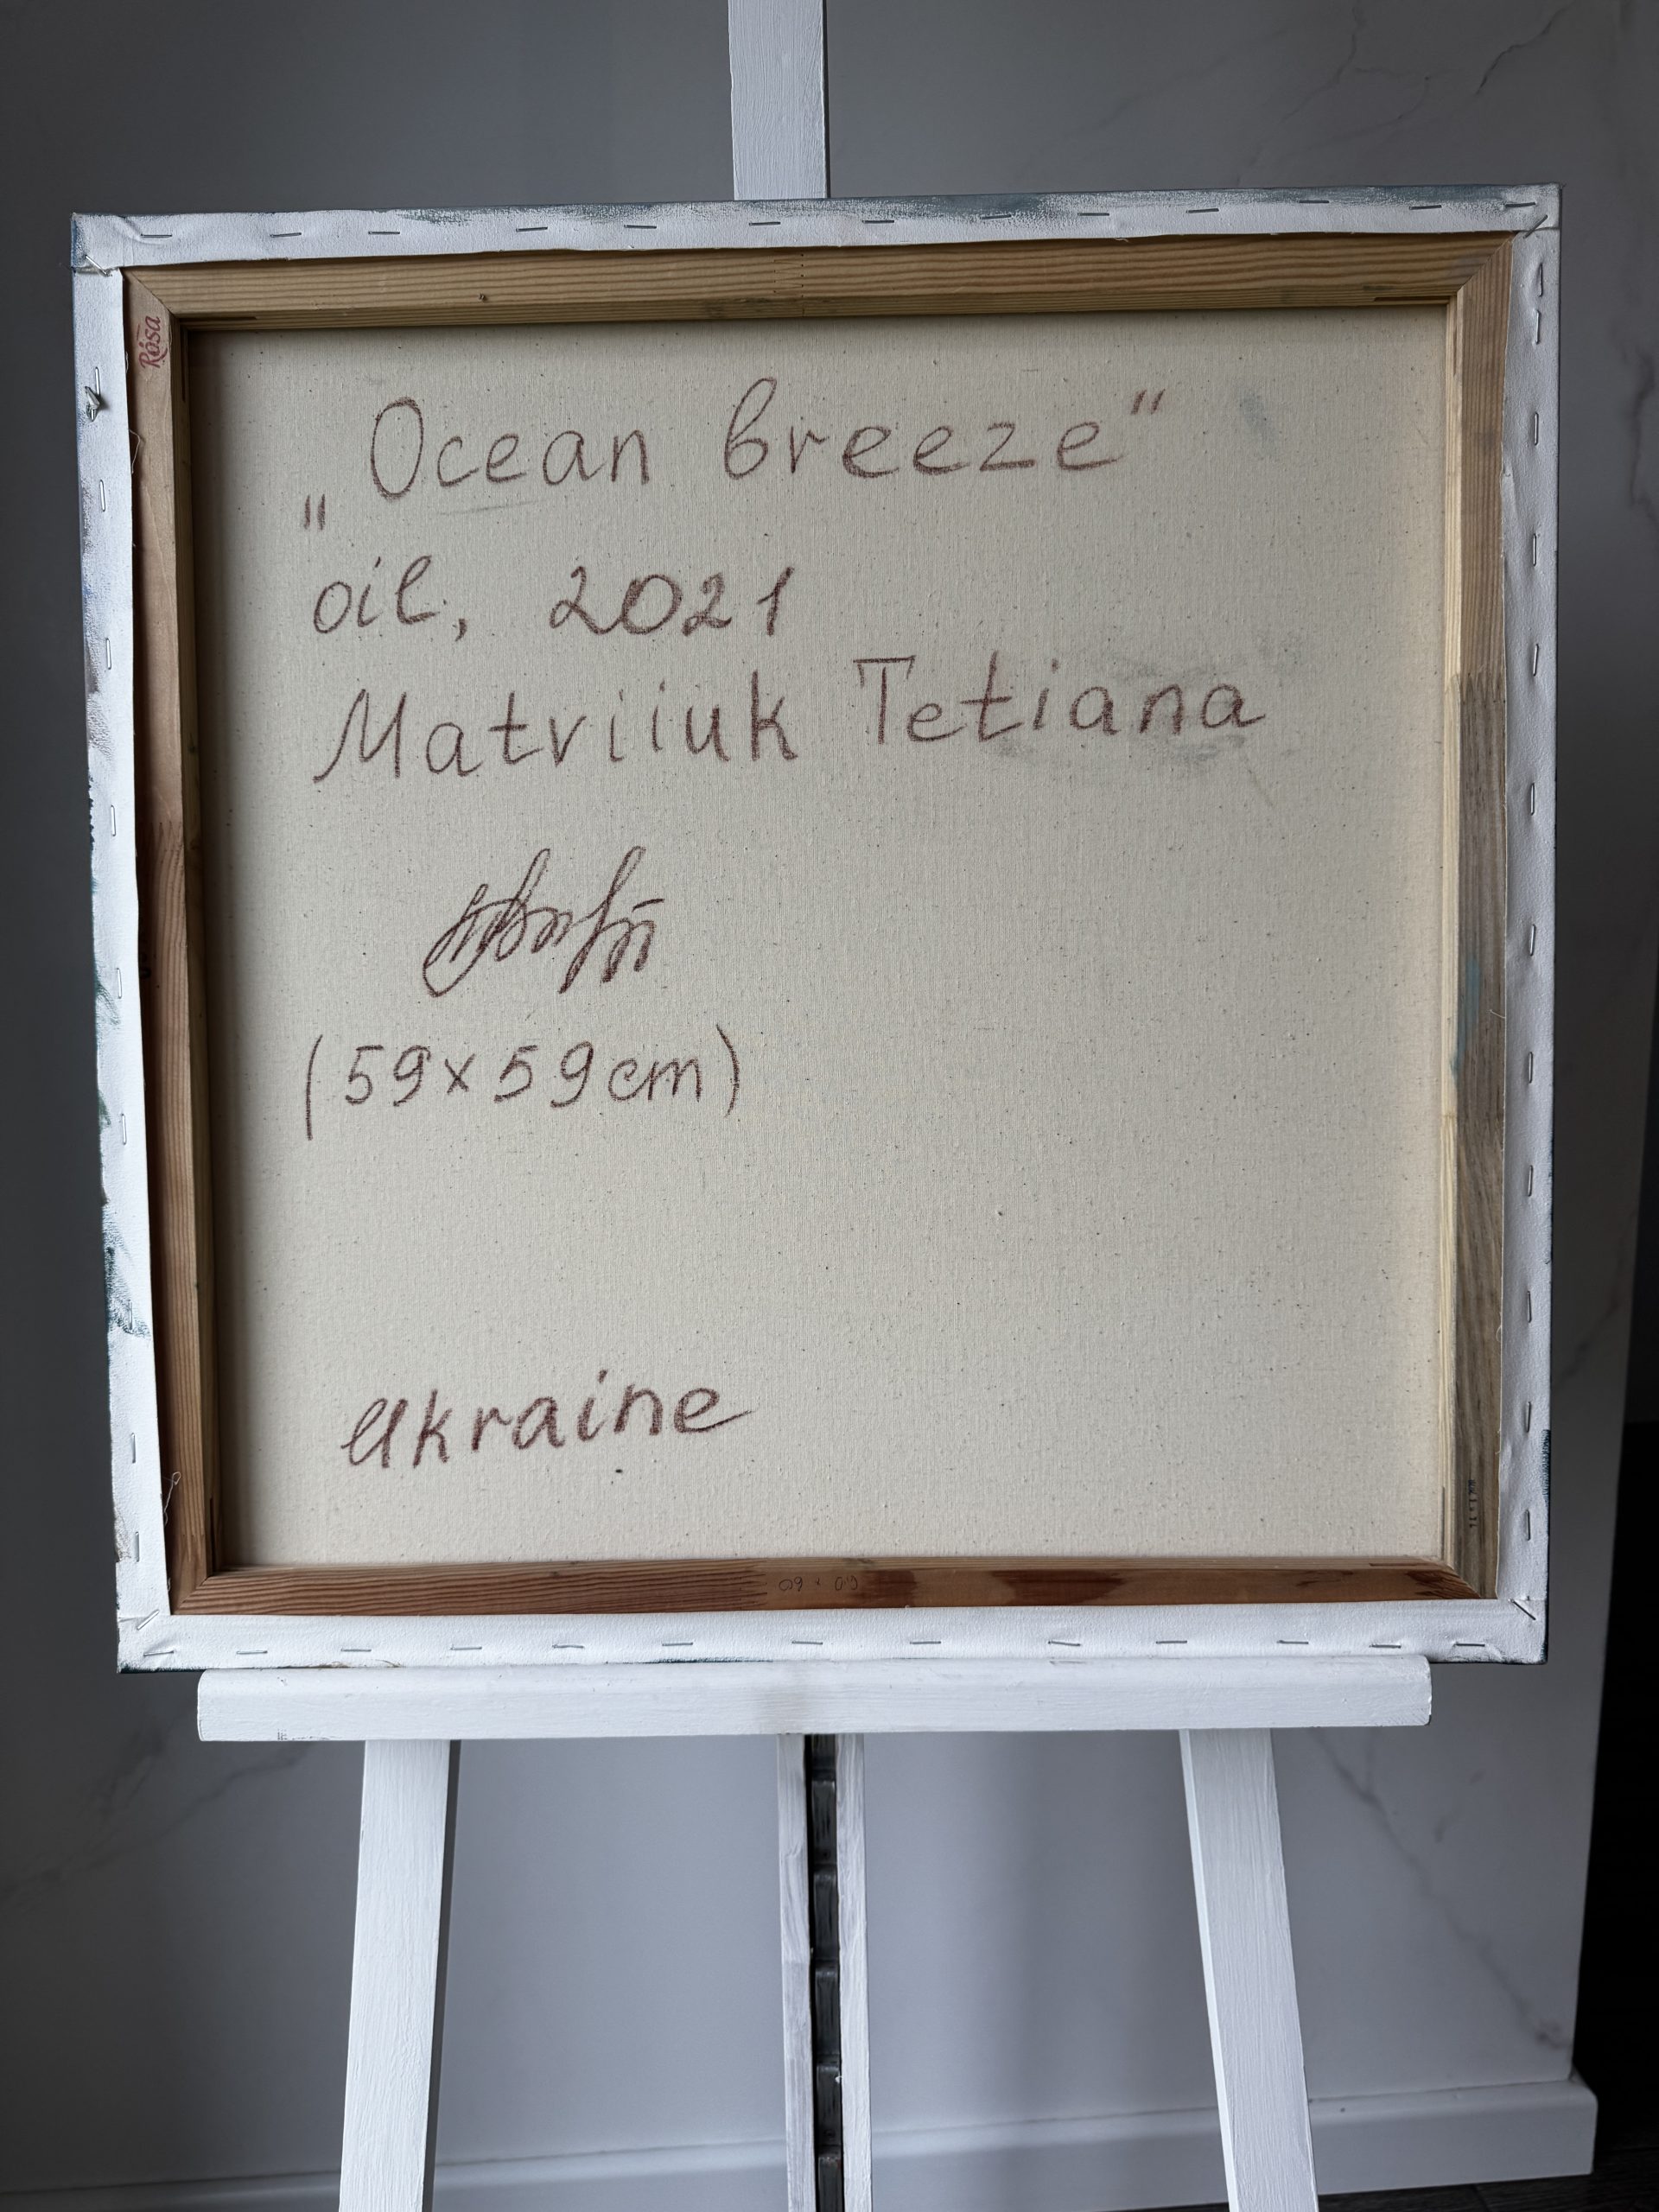 Rosa
„Ocean breeze"
oil, 2021
Matviiuk Tetiana
(59x59cm)
Ukraine
60 x 60